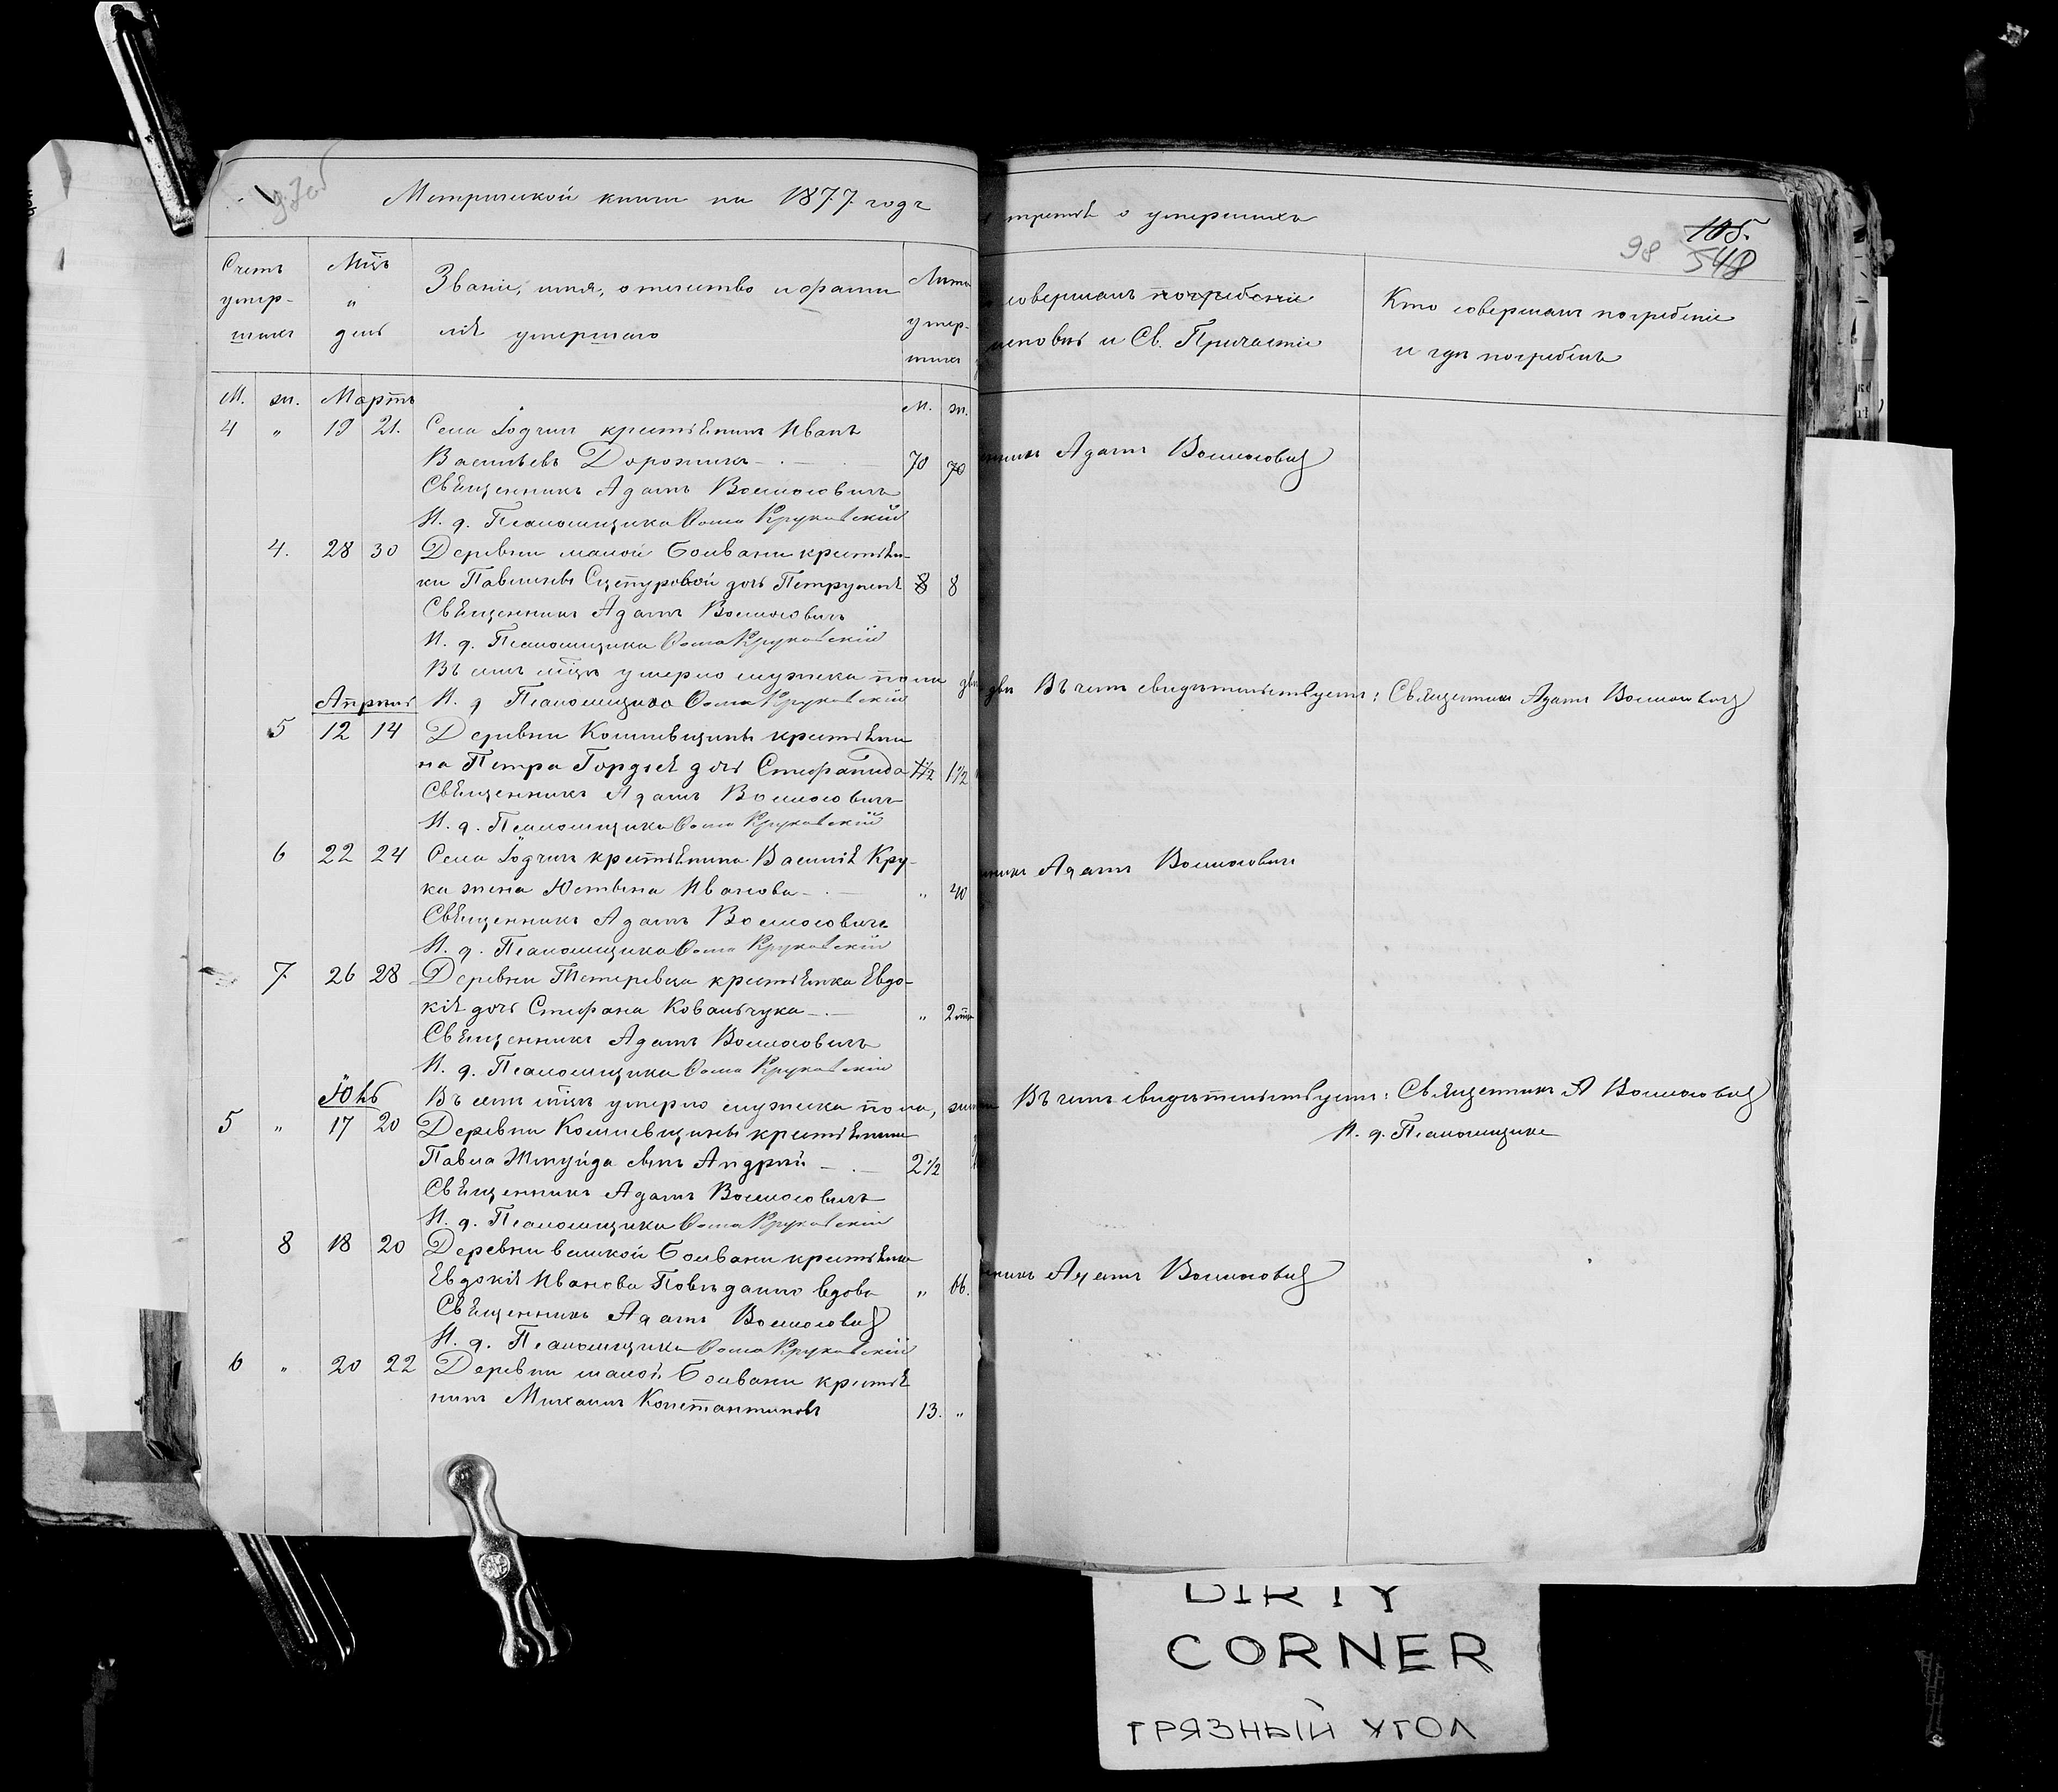 97об
Метрической книги на 1877 годъ
Счетъ умер-шихъ
Мцъ " день
Званіе, имя, отечество и фами
лія умершаго
Лета умер-шихъ
М. ж. Мартъ М. ж.
4 " 19 21. Села Іодчиц крестьянинъ Иванъ
Васильевъ Дорожика 70 70
Священникъ Адамъ Волосовичъ
И. д. Псаломщика Ѳома Круковскій
4. 28 30 Деревни малой Болвани крестьян-
ки Павлины Сцепуровой дочь Петрунеля 8 8
Священникъ Адамъ Волосовичъ
И. д. Псаломщика Ѳома Круковскій
Въ семъ мцѣ умерло мужска пола
Апрель И. д Псаломщика Ѳома Круковскій
5 12 14 Деревни Кошевщины крестьяни
на Петра Гордея дочь Стефанида 1½ 1½
Священникъ Адамъ Волосовичъ
И. д. Псаломщика Ѳома Круковскій
6 22 24 Села Іодчиц крестьянина Василія Кру-
ка жена Юстина Иванова " 40
Священникъ Адамъ Волосовичъ
И. д. Псаломщика Ѳома Круковскій
7 26 28 Деревни Тетеревца крестьянка Евдо-
кія дочь Стефана Ковальчука " 2 мца
Священникъ Адамъ Волосовичъ
И. д. Псаломщика Ѳома Круковскій
Іюнь Въ семъ мцѣ умерло мужска пола,
5 " 17 20 Деревни Кошевщины крестьянина
Павла сынъ Андрей 2½
Священникъ Адамъ Волосовичъ
И. д. Псаломщика Ѳома Круковскій
8 18 20 Деревни великой Болвани крестьянка
Евдокія Иванова вдова " 66.
Священникъ Адамъ Волосовичъ
И. д. Псаломщика Ѳома Круковскій
6 " 20 22 Деревни малой Болвани крестья
нинъ Михаилъ Константиновъ 13. "
третья о умершихъ
98 105. 548
совершалъ погребеніе
исповѣдь и Св. Причастіе
Кто совершалъ погребеніе
и гдѣ погребенъ
Адамъ Волосовичъ
двѣ Въ чемъ свидѣтельствуемъ: Священникъ Адамъ Волосовичъ
Адамъ Волосовичъ
Въ чемъ свидѣтельствуемъ: Священникъ А Волосовичъ
И. д. Псаломщика
Адамъ Волосовичъ
DIRTY
CORNER
ГРЯЗНЫЙ УГОЛ